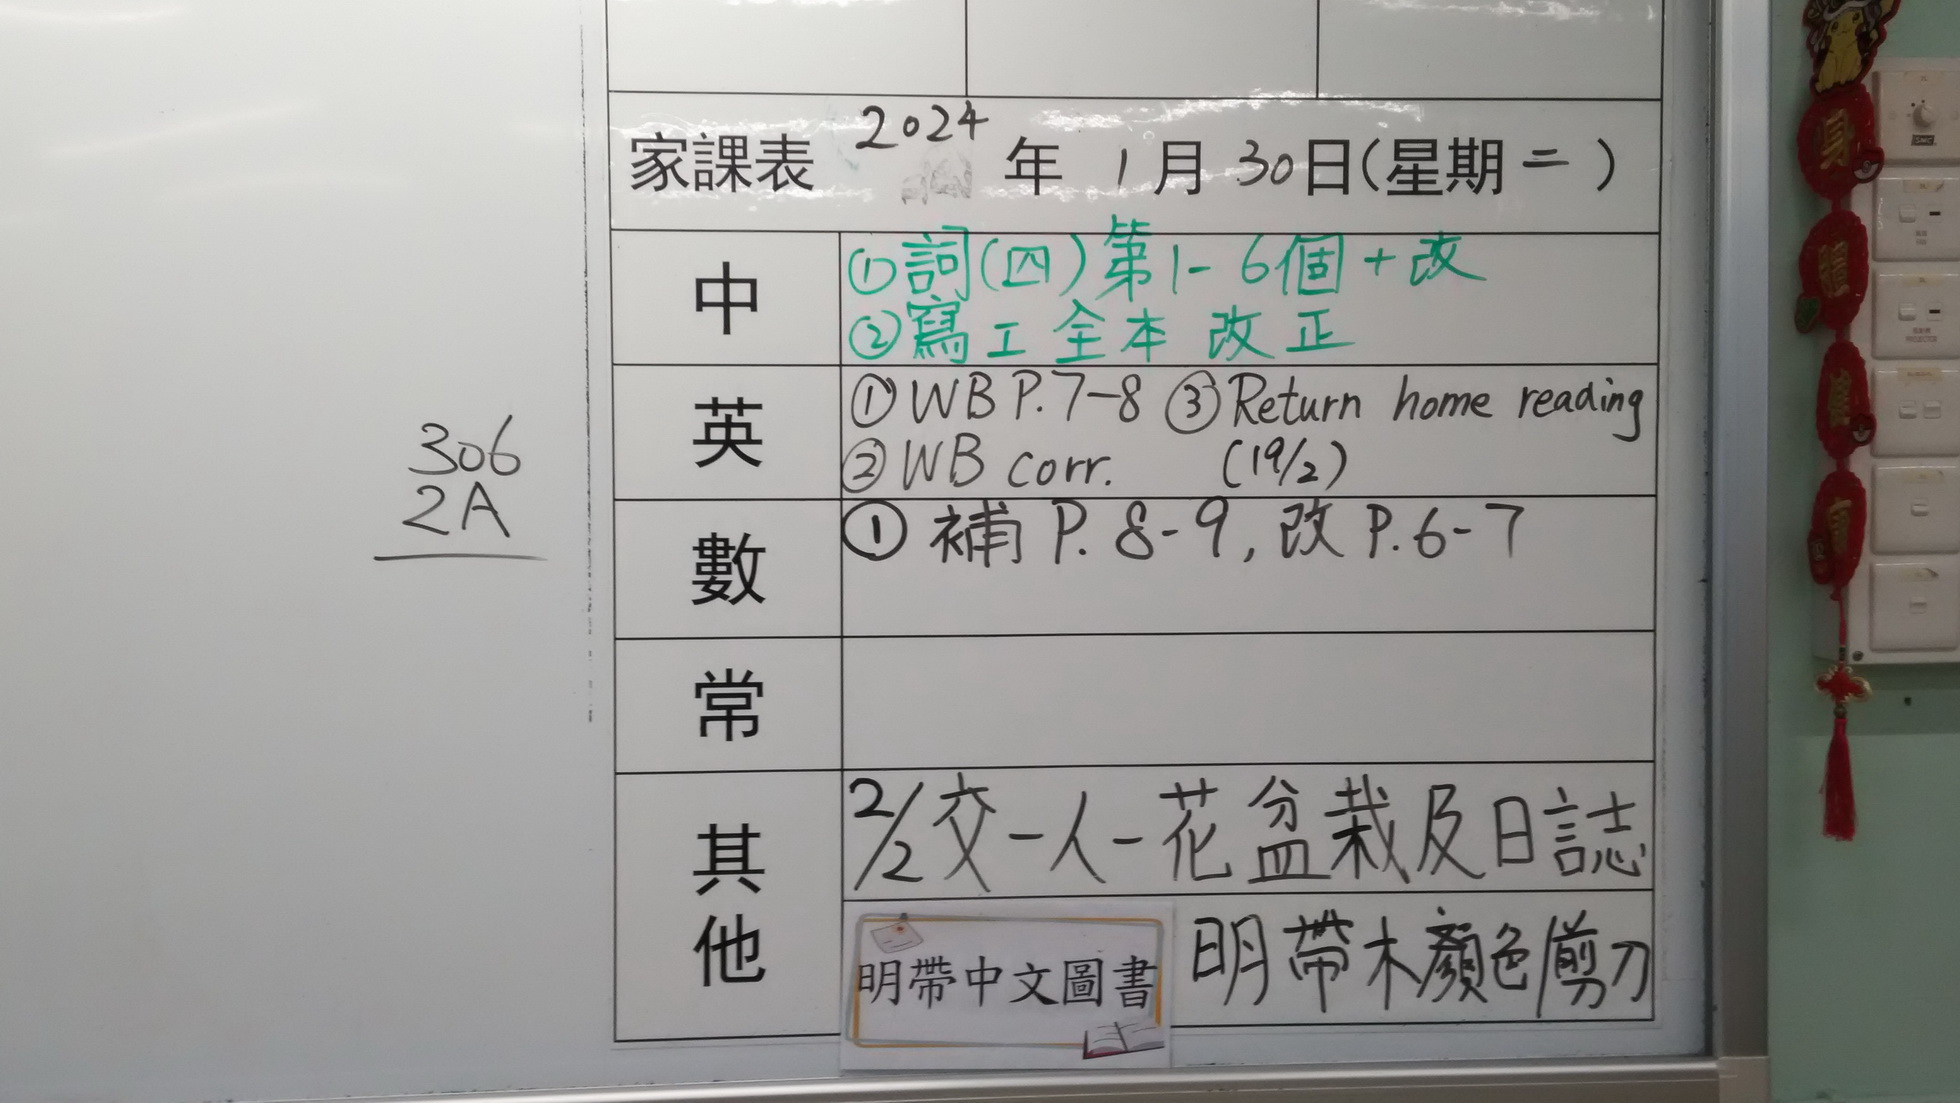 家課表 2024 年 1 月 30 日(星期二)
中
①詞(四)第1-6個+改
②寫工全本 改正
英
①WB P.7-8 ③Return home reading
②WB corr. (19/2)
306
2A
數
① 補 P. 8-9, 改 P.6-7
常
其他
2/2交一人一花盆栽及日誌
明帶中文圖書
明帶木顏色/剪刀